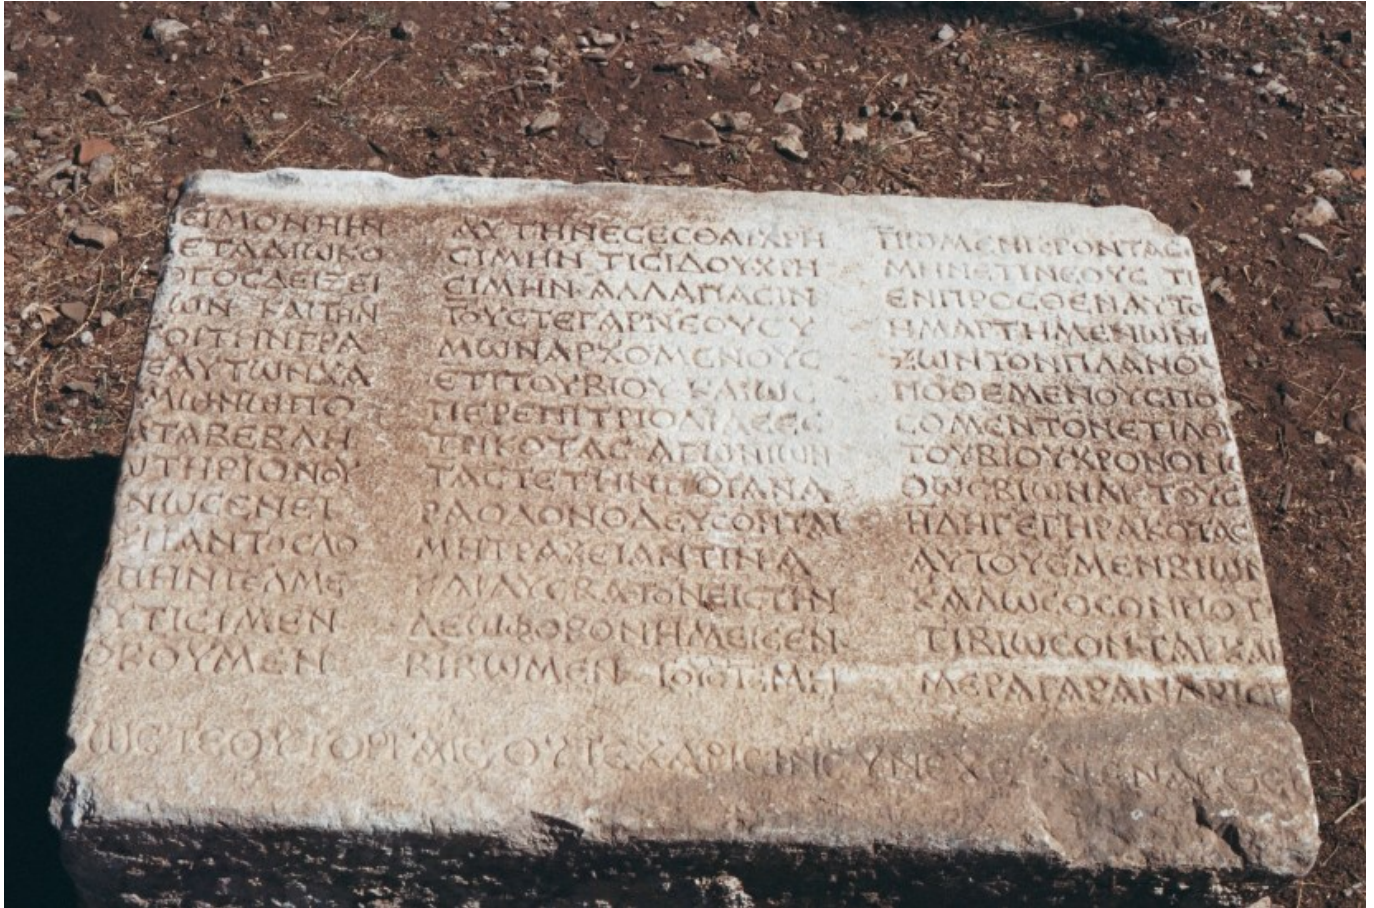 ΕΙΜΟΝΗΗΝ
ΕΤΑΔΙΩΚΟ
ΟΓΟϹΔΕΙΞΕΙ
ΙΩΝ ΚΑΙΤΗΝ
ΟΙΤΗΝΓΡΑ
ΕΑΥΤΩΝΧΑ
ΜΙΩΝΩΠΟ
ΑΤΑΒΕΒΛΗ
ΩΤΗΡΙΟΝΟΥ
ΝΙΩϹΕΝΕΙ
ΥΠΑΝΤΟϹΛΟ
ΠΗΝΤΕΛΜΕ
ΥΤΙϹΙΜΕΝ
ΟΚΟΥΜΕΝ
ΑΥΤΗΝΕϹΕϹΘΑΙΧΡΗ
ϹΙΜΗΝ ΤΙϹΙΔΟΥΧΡΗ
ϹΙΜΗΝ ΑΛΛΑΠΑϹΙΝ
ΤΟΥϹΤΕΓΑΡΝΕΟΥϹΥ
ΜΩΝΑΡΧΟΜΕΝΟΥϹ
ΕΤΙΤΟΥΒΙΟΥ ΚΑΙΩϹ
ΠΕΡΕΠΙΤΡΙΟΔΙΔΕΕϹ
ΤΡΙΚΟΤΑϹ ΑΓΩΝΙΩΝ
ΤΑϹΤΕΤΗΝ ΠΟΙΑΝΑ
ΡΑΟΔΟΝΟΔΕΥϹΟΝΤΑΙ
ΜΗΤΡΑΧΕΙΑΝΤΙΝΑ
ΚΑΙΔΥϹΒΑΤΟΝΕΙϹΤΗΝ
ΛΕΩΦΟΡΟΝΗΜΕΙϹΕΝ
ΒΙΒΩΜΕΝ ΤΟΥϹΤΕΜΗ
ΠΩΜΕΝΓΕΡΟΝΤΑϹ
ΜΗΝΕΤΙΝΕΟΥϹ ΤΙ
ΕΝΠΡΟϹΘΕΝΑΥΤΟ
ΗΜΑΡΤΗΜΕΝΩΝ
ΞΩΝΤΟΝΠΛΑΝΟ
ΠΟΘΕΜΕΝΟΥϹΠΟ
ϹΟΜΕΝΤΟΝΕΠΙΛΟΙ
ΤΟΥΒΙΟΥΧΡΟΝΟΝ
ΟΩϹΒΙΩΝΑΙ ΤΟΥϹ
ΗΔΗΓΕΓΗΡΑΚΟΤΑϹ
ΑΥΤΟΥϹΜΕΝΒΙΩΝ
ΚΑΛΩϹΟϹΟΝΠΟΤ
ΤΙΒΙΩϹΟΝΤΑΙΚΑΙ
ΜΕΡΑΓΑΡΑΝΑΡΙϹ
ΩϹΤΕΟΥΤΟΡΓΑΙϹ ΟΥΤΕΧΑΡΙϹΙΝϹΥΝΕΧΕ